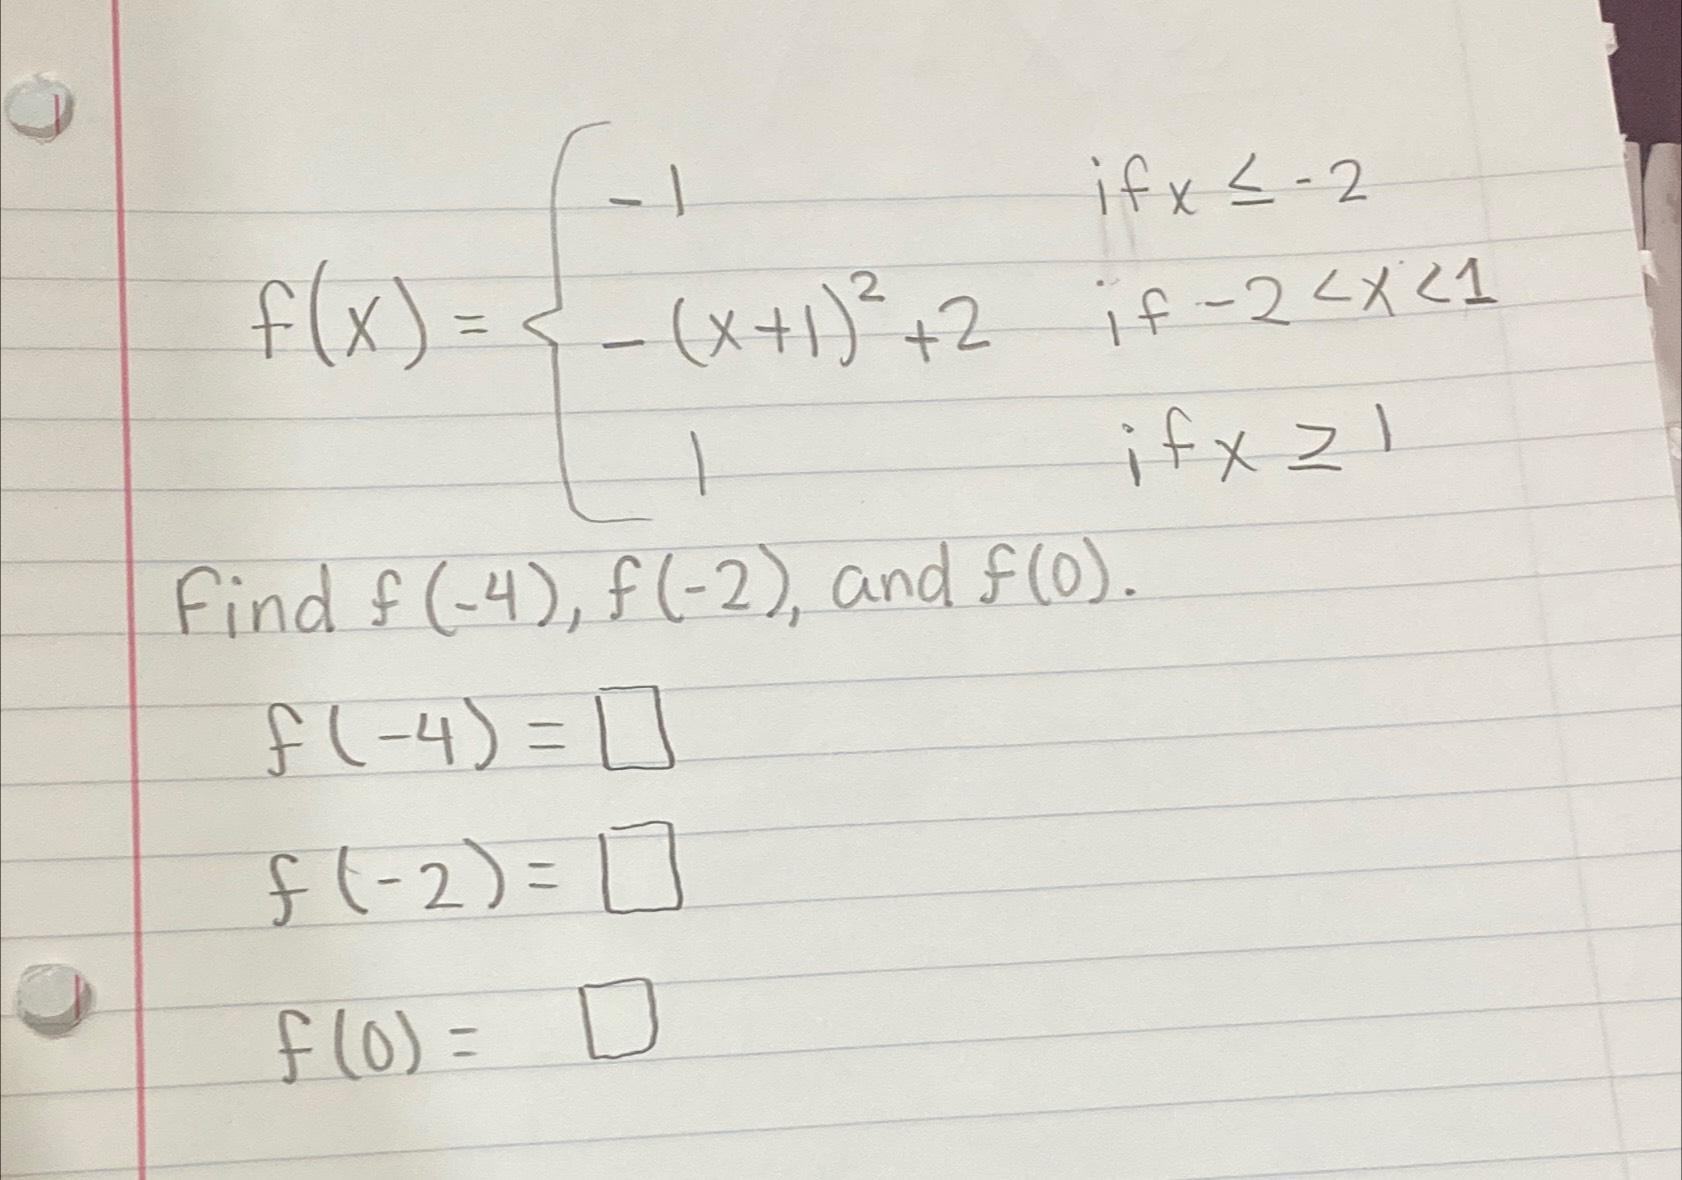 f(x) = { -1 if x ≤ -2
-(x+1)² +2 if -2 < x < 1
1 if x ≥ 1
Find f(-4), f(-2), and f(0).
f(-4) = □
f(-2) = □
f(0) = □